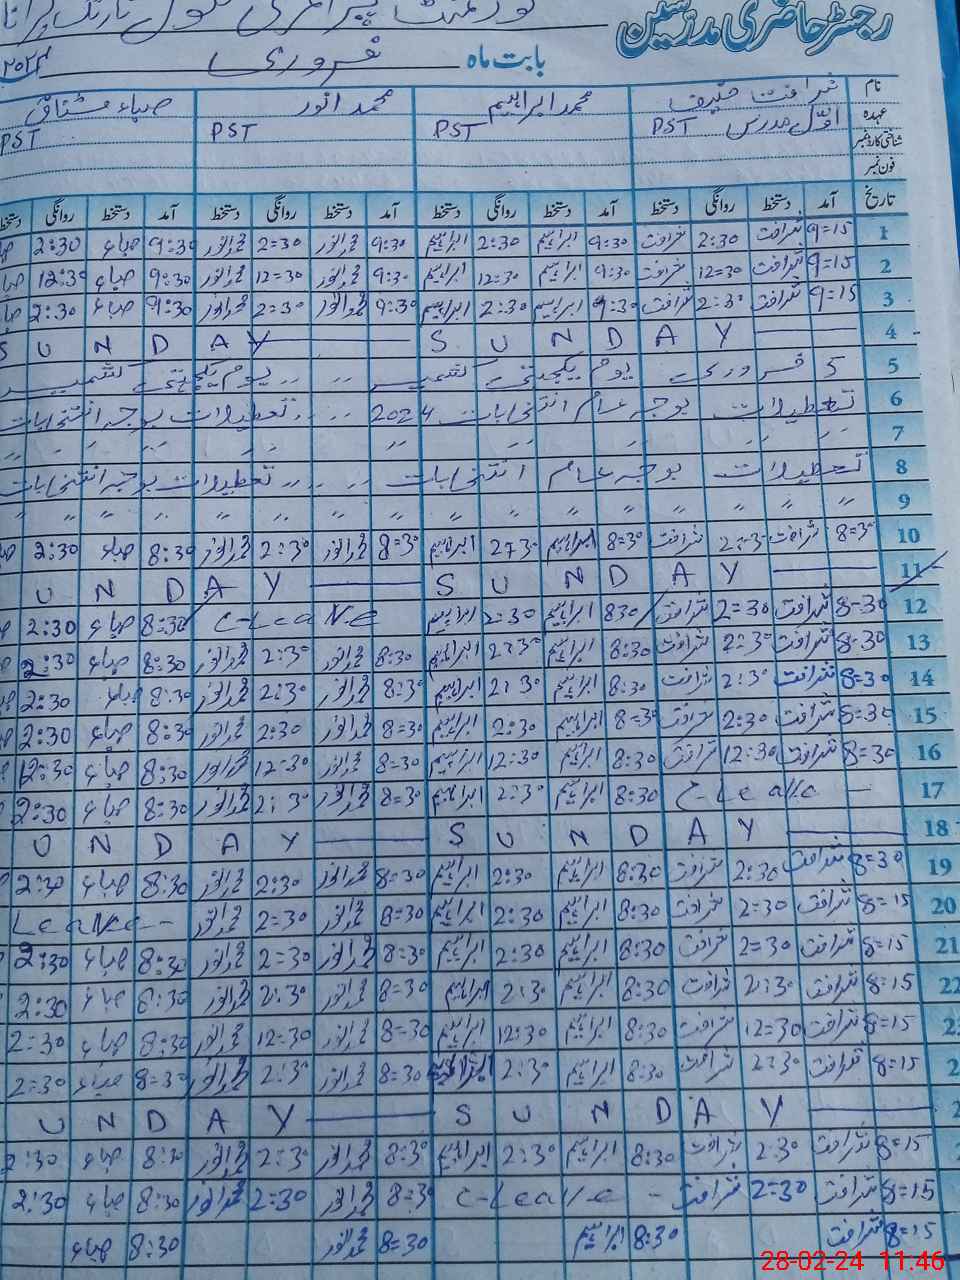 رجسٹر حاضری مدرسین
بابت ماہ فروری
نام شرافت حنیف محمد ابراہیم محمد انور صباء مشتاق
عہدہ اوّل مدرس PST PST PST PST
شناختی کارڈ نمبر
فون نمبر
تاریخ آمد دستخط روانگی دستخط آمد دستخط روانگی دستخط آمد دستخط روانگی دستخط آمد دستخط روانگی دستخط
1 9=15 شرافت 2:30 شرافت 9:30 ابراہیم 2:30 ابراہیم 9:30 محمد انور 2=30 محمد انور 9:30 صباء 2:30
2 9=15 شرافت 12=30 شرافت 9:30 ابراہیم 12:30 ابراہیم 9:30 محمد انور 12=30 محمد انور 9:30 صباء 12:30
3 9=15 شرافت 2:30 شرافت 9:30 ابراہیم 2:30 ابراہیم 9:30 محمد انور 2:30 محمد انور 9:30 صباء 2:30
4 SUNDAY SUNDAY
5 5 فروری یوم یکجہتی کشمیر " " یوم یکجہتی کشمیر
6 تعطیلات بوجہ عام انتخابات 2024 " " تعطیلات بوجہ انتخابات
7 " " " " " " " "
8 تعطیلات بوجہ عام انتخابات " " " تعطیلات بوجہ انتخابات
9 " " " " " " " " " " " " " " "
10 8=30 شرافت 2:30 شرافت 8=30 ابراہیم 2:30 ابراہیم 8=30 محمد انور 2:30 محمد انور 8:30 صباء 2:30
11 SUNDAY UNDAY
12 8=30 شرافت 2=30 شرافت 830 ابراہیم 2:30 ابراہیم C-Leave 8:30 صباء 2:30
13 8=30 شرافت 2:30 شرافت 8:30 ابراہیم 2:30 ابراہیم 8:30 محمد انور 2:30 محمد انور 8:30 صباء 2:30
14 8=30 شرافت 2:30 شرافت 8:30 ابراہیم 2:30 ابراہیم 8:30 محمد انور 2:30 محمد انور 8:30 صباء 2:30
15 8=30 شرافت 2:30 شرافت 8=30 ابراہیم 2:30 ابراہیم 8=30 محمد انور 2:30 محمد انور 8:30 صباء 2:30
16 8=30 شرافت 12:30 شرافت 8:30 ابراہیم 12:30 ابراہیم 8=30 محمد انور 12=30 محمد انور 8:30 صباء 12:30
17 C-Leave - 8:30 ابراہیم 2:30 ابراہیم 8=30 محمد انور 2:30 محمد انور 8:30 صباء 2:30
18 SUNDAY UNDAY
19 8=30 شرافت 2:30 شرافت 8:30 ابراہیم 2:30 ابراہیم 8=30 محمد انور 2:30 محمد انور 8:30 صباء 2:30
20 8=15 شرافت 2=30 شرافت 8:30 ابراہیم 2:30 ابراہیم 8=30 محمد انور 2=30 محمد انور Leave -
21 8=15 شرافت 2=30 شرافت 8:30 ابراہیم 2:30 ابراہیم 8=30 محمد انور 2=30 محمد انور 8:30 صباء 2:30
22 8=15 شرافت 2:30 شرافت 8:30 ابراہیم 2:30 ابراہیم 8=30 محمد انور 2:30 محمد انور 8:30 صباء 2:30
8=15 شرافت 12=30 شرافت 8:30 ابراہیم 12:30 ابراہیم 8=30 محمد انور 12=30 محمد انور 8:30 صباء 2=30
8=15 شرافت 2:30 شرافت 8:30 ابراہیم 2:30 ابراہیم 8=30 محمد انور 2:30 محمد انور 8=30 صباء 2=30
SUNDAY UNDAY
8=15 شرافت 2:30 شرافت 8:30 ابراہیم 2:30 ابراہیم 8:30 محمد انور 2:30 محمد انور 8:30 صباء 2:30
8=15 شرافت 2=30 شرافت C-Leave - 8=30 محمد انور 2=30 محمد انور 8:30 صباء 2:30
8=15 شرافت 8:30 ابراہیم 8=30 محمد انور 8:30 صباء
28-02-24 11.46